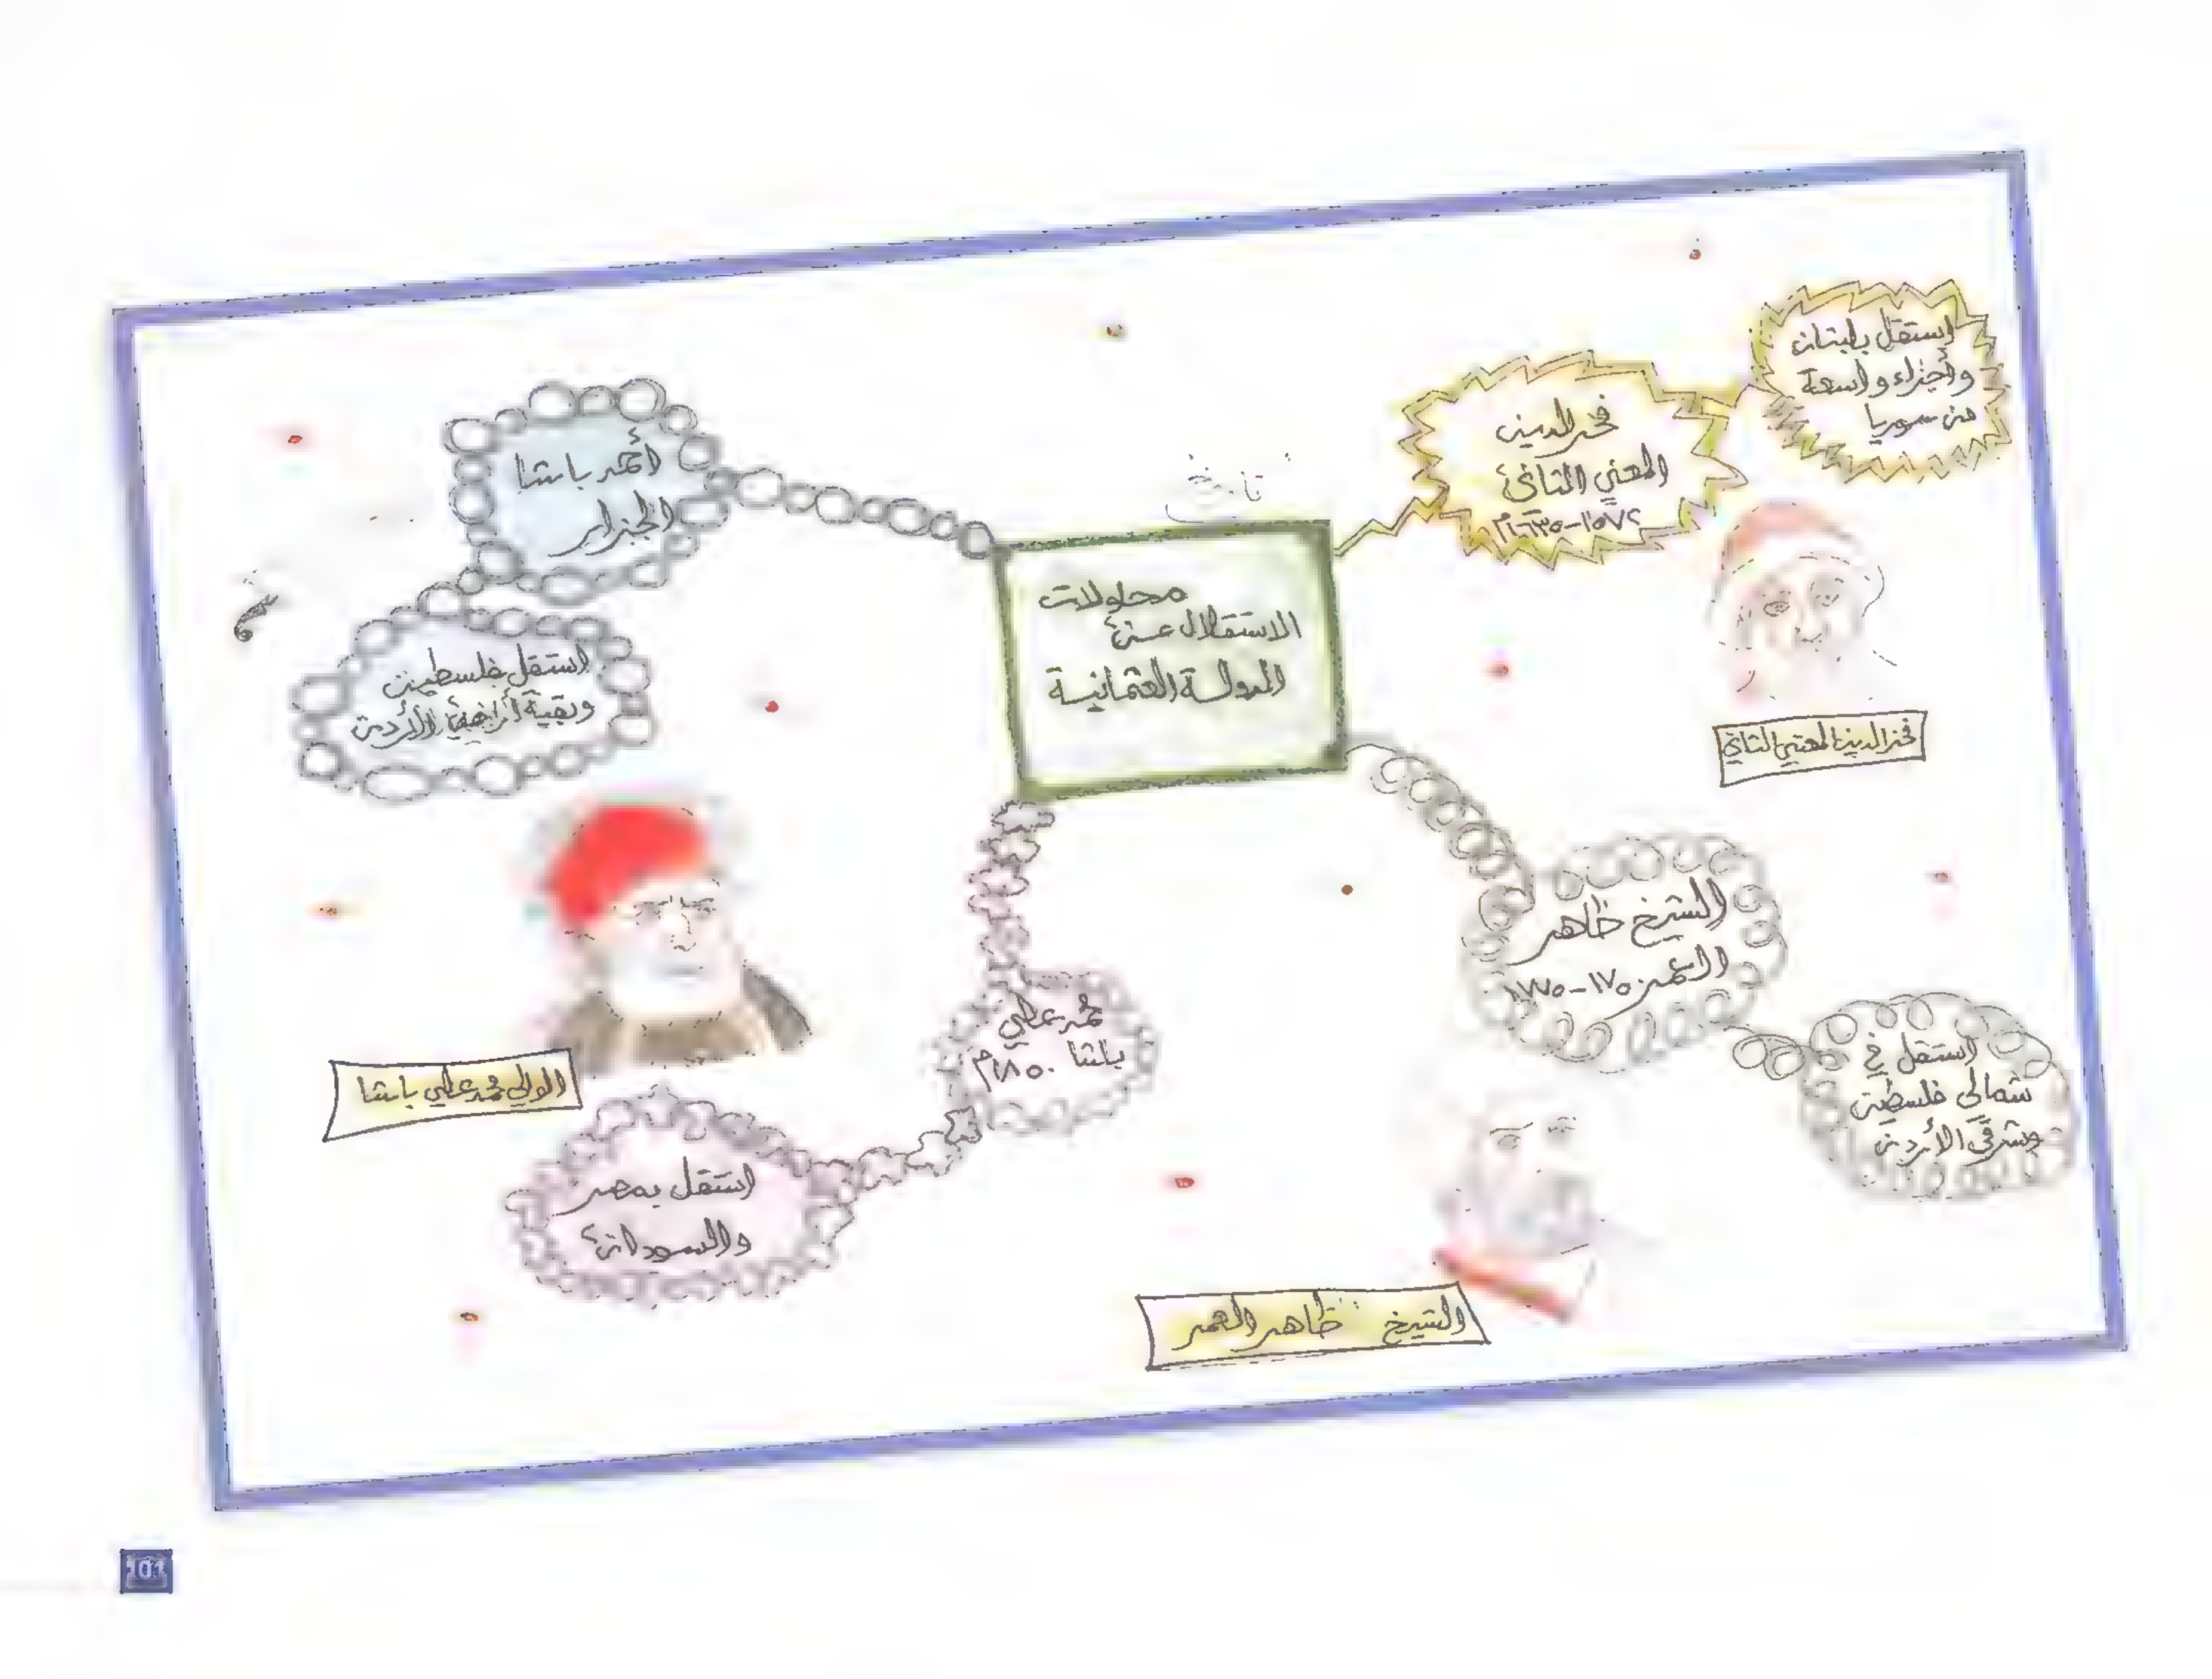 تاريخ
محاولات
الاستقلال عن
الدولة العثمانية
فخر الدين
المعني الثاني
١٥٧٢-١٦٣٥م
استقل بلبنان
وأجزاء واسعة
من سوريا
فخر الدين المعني الثاني
الشيخ ظاهر
العمر ١٧٥٠-١٧٧٥
استقل في
شمالي فلسطين
وشرقي الأردن
الشيخ ظاهر العمر
أحمد باشا
الجزار
استقل بفلسطين
وبقية أراضي الأردن
محمد علي
باشا ١٨٥٠م
استقل بمصر
والسودان
الوالي محمد علي باشا
101